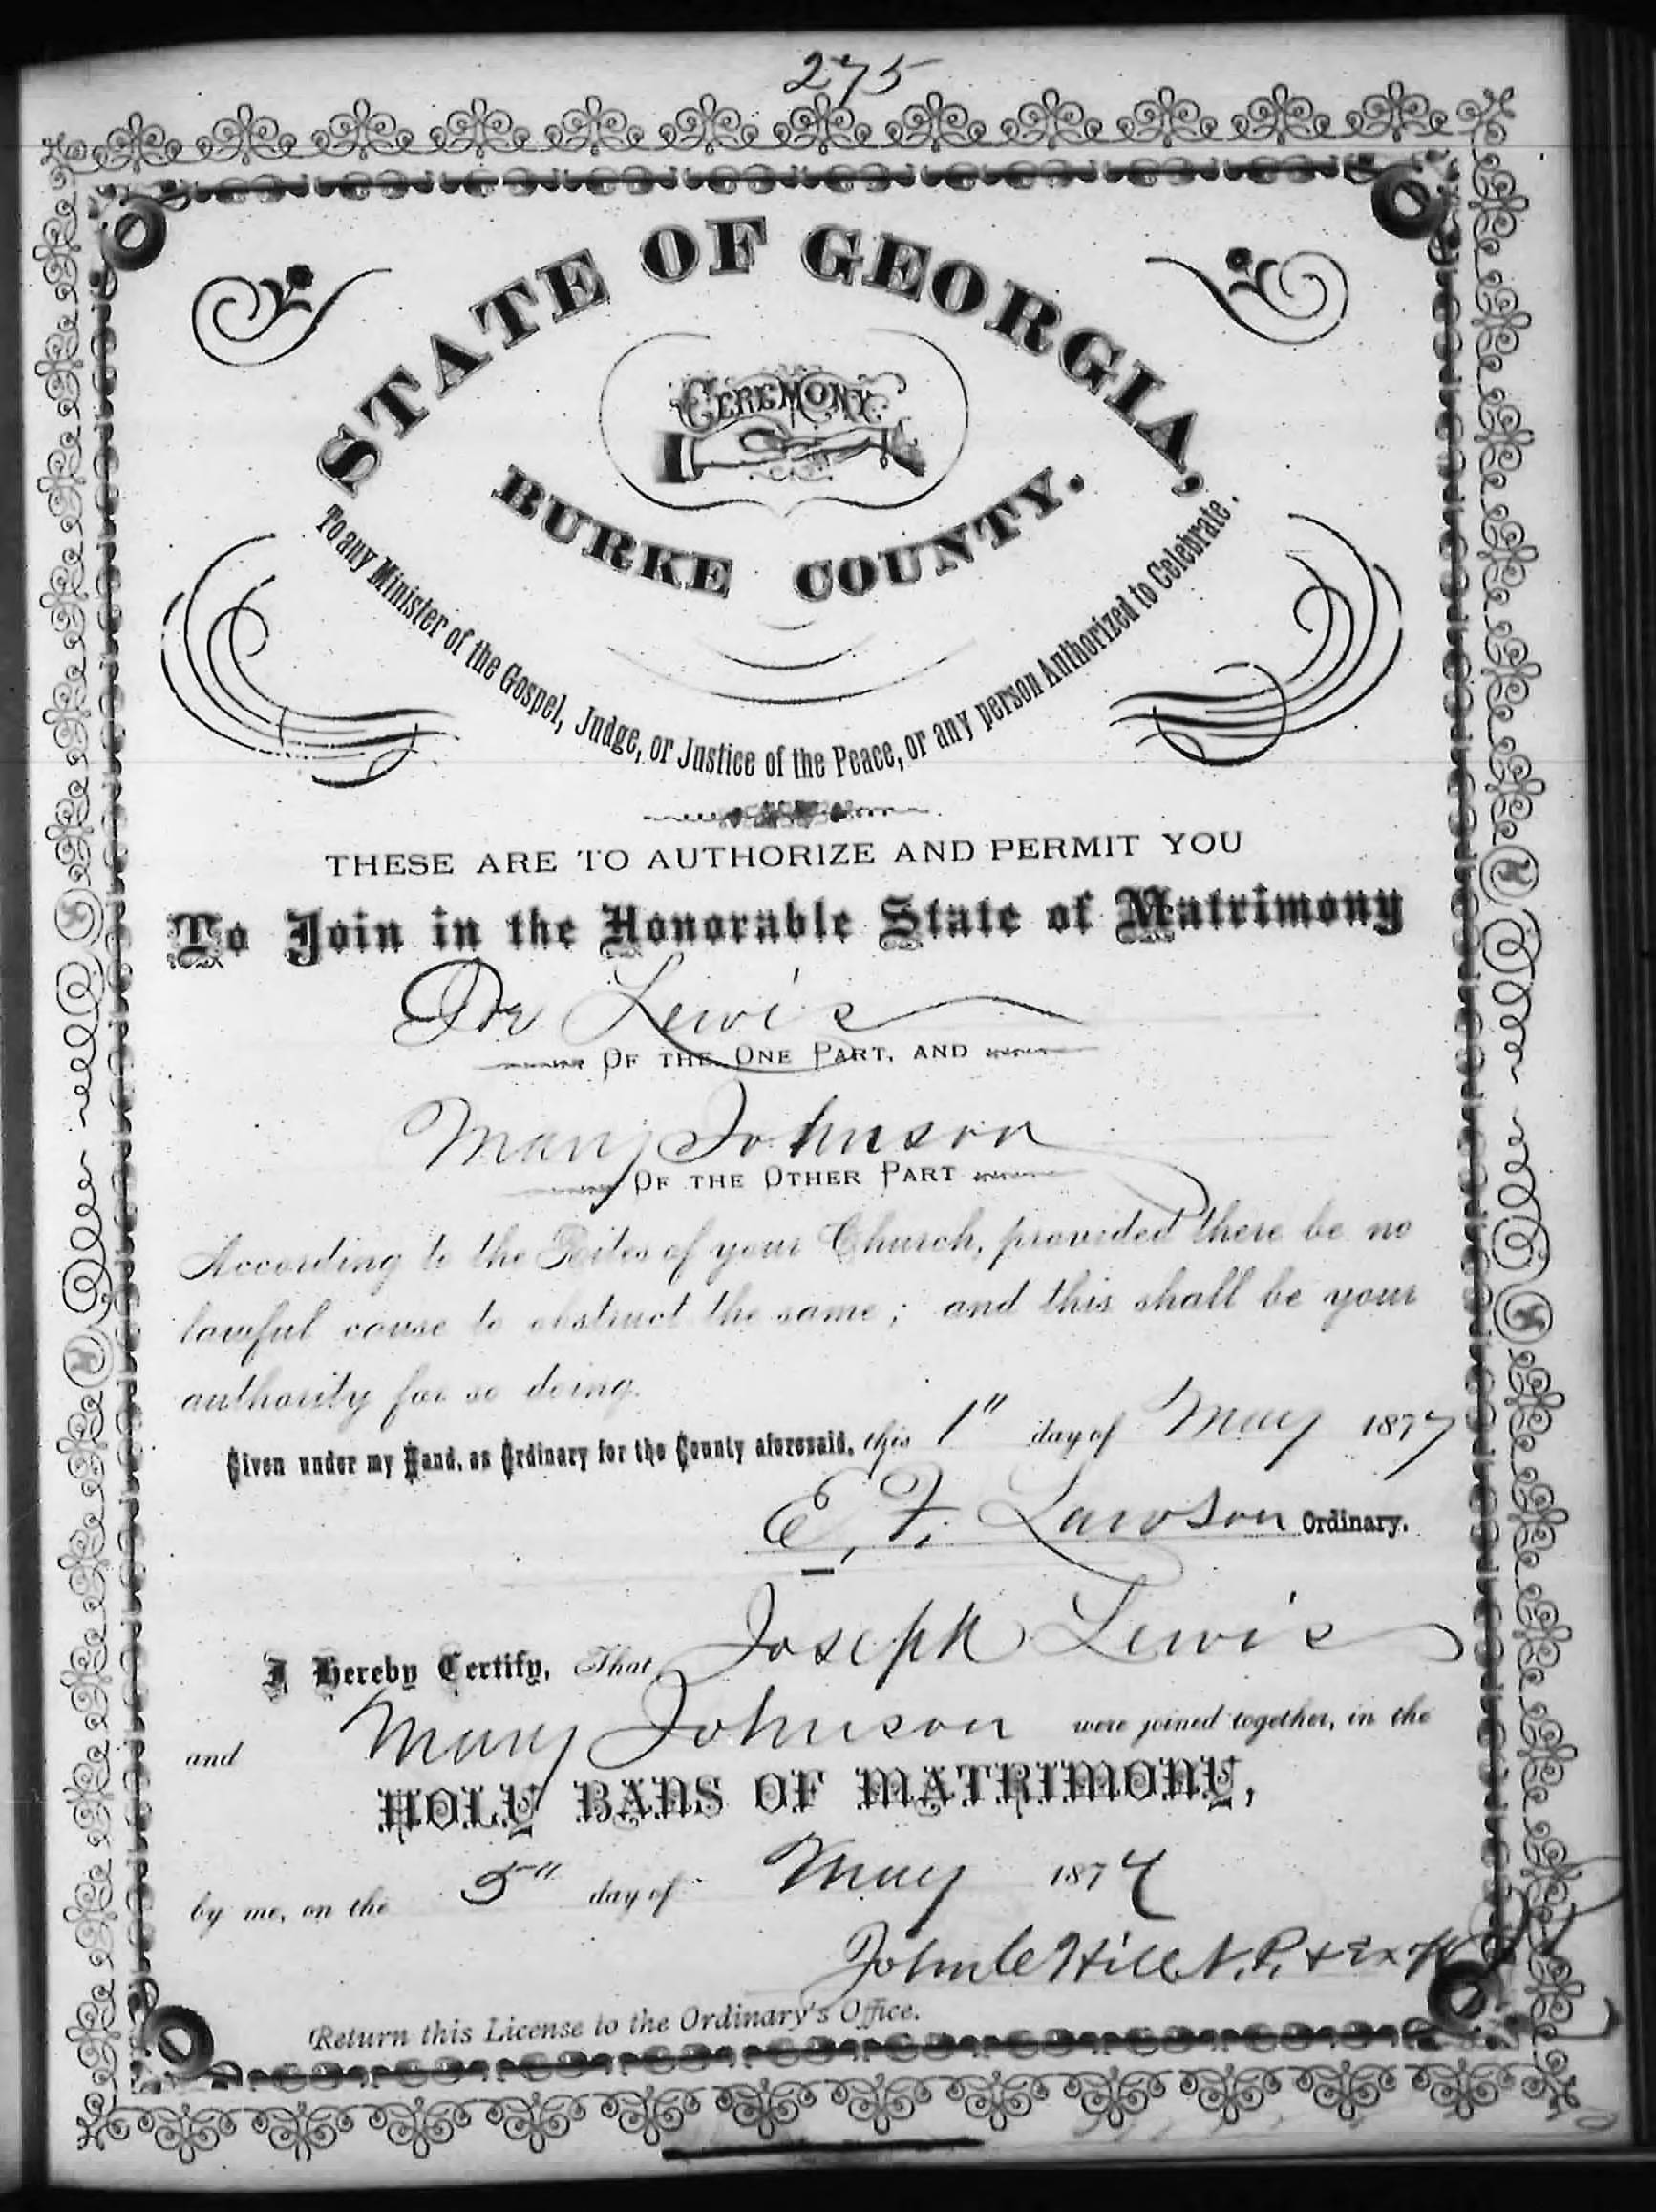 275
STATE OF GEORGIA,
CEREMONY
BURKE COUNTY.
To any Minister of the Gospel, Judge, or Justice of the Peace, or any person Authorized to Celebrate.
THESE ARE TO AUTHORIZE AND PERMIT YOU
To Join in the Honorable State of Matrimony
Lewis
OF THE ONE PART, AND
Mary Johnson
OF THE OTHER PART
According to the Rites of your Church, provided there be no
lawful cause to obstruct the same; and this shall be your
authority for so doing.
Given under my Hand, as Ordinary for the County aforesaid, this 1" day of May 1877
E. F. Lawson Ordinary.
I Hereby Certify, That Joseph Lewis
and Mary Johnson were joined together, in the
HOLY BANS OF MATRIMONY,
by me, on the 5" day of May 1877
John C Hill N. P. & Ex
Return this License to the Ordinary's Office.